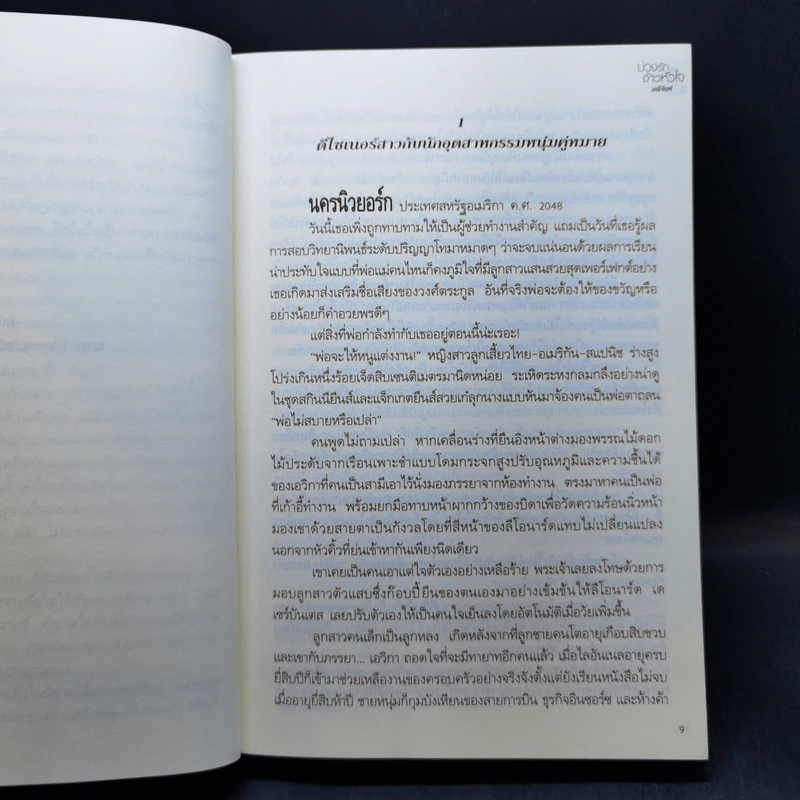 บ่วงรัก
จ้าวหัวใจ
1
ดีไซเนอร์สาวกับนักอุตสาหกรรมหนุ่มคู่หมาย
นครนิวยอร์ก ประเทศสหรัฐอเมริกา ค.ศ. 2048
วันนี้เธอเพิ่งถูกทาบทามให้เป็นผู้ช่วยทำงานสำคัญ แถมเป็นวันที่เธอรู้ผล
การสอบวิทยานิพนธ์ระดับปริญญาโทมาหมาดๆ ว่าจะจบแน่นอนด้วยผลการเรียน
น่าประทับใจแบบที่พ่อแม่คนไหนก็คงภูมิใจที่มีลูกสาวแสนสวยสุดเพอร์เฟกต์อย่าง
เธอเกิดมาส่งเสริมชื่อเสียงของวงศ์ตระกูล อันที่จริงพ่อจะต้องให้ของขวัญหรือ
อย่างน้อยก็คำอวยพรดีๆ
แต่สิ่งที่พ่อกำลังทำกับเธออยู่ตอนนี้น่ะเรอะ!
“พ่อจะให้หนูแต่งงาน!” หญิงสาวลูกเสี้ยวไทย-อเมริกัน-สแปนิช ร่างสูง
โปร่งเกินหนึ่งร้อยเจ็ดสิบเซนติเมตรมานิดหน่อย ระเหิดระหงกลมกลึงอย่างน่าดู
ในชุดสกินนียีนส์และแจ็กเกตยีนส์สวยเก๋ลุกนางแบบหันมาจ้องคนเป็นพ่อตาถลน
“พ่อไม่สบายหรือเปล่า”
คนพูดไม่ถามเปล่า หากเคลื่อนร่างที่ยืนอิงหน้าต่างมองพรรณไม้ดอก
ไม้ประดับจากเรือนเพาะชำแบบโดมกระจกสูงปรับอุณหภูมิและความชื้นได้
ของเอวิกาที่คนเป็นสามีเอาไว้นั่งมองภรรยาจากห้องทำงาน ตรงมาหาคนเป็นพ่อ
ที่เก้าอี้ทำงาน พร้อมยกมือทาบหน้าผากกว้างของบิดาเพื่อวัดความร้อนนิ่วหน้า
มองเขาด้วยสายตาเป็นกังวลโดยที่สีหน้าของลีโอนาร์ดแทบไม่เปลี่ยนแปลง
นอกจากหัวคิ้วที่ย่นเข้าหากันเพียงนิดเดียว
เขาเคยเป็นคนเอาแต่ใจตัวเองอย่างเหลือร้าย พระเจ้าเลยลงโทษด้วยการ
มอบลูกสาวตัวแสบซึ่งก๊อบปี้ยีนของตนเองมาอย่างเข้มข้นให้ลีโอนาร์ด เด
เซร์บันเตส เลยปรับตัวเองให้เป็นคนใจเย็นลงโดยอัตโนมัติเมื่อวัยเพิ่มขึ้น
ลูกสาวคนเล็กเป็นลูกหลง เกิดหลังจากที่ลูกชายคนโตอายุเกือบสิบขวบ
และเขากับภรรยา... เอวิกา ถอดใจที่จะมีทายาทอีกคนแล้ว เมื่อไลอันเนลอายุครบ
ยี่สิบปีก็เข้ามาช่วยเหลืองานของครอบครัวอย่างจริงจังตั้งแต่ยังเรียนหนังสือไม่จบ
เมื่ออายุยี่สิบห้าปี ชายหนุ่มก็กุมบังเหียนของสายการบิน ธุรกิจอินชอร์ซ และห้างค้า
9